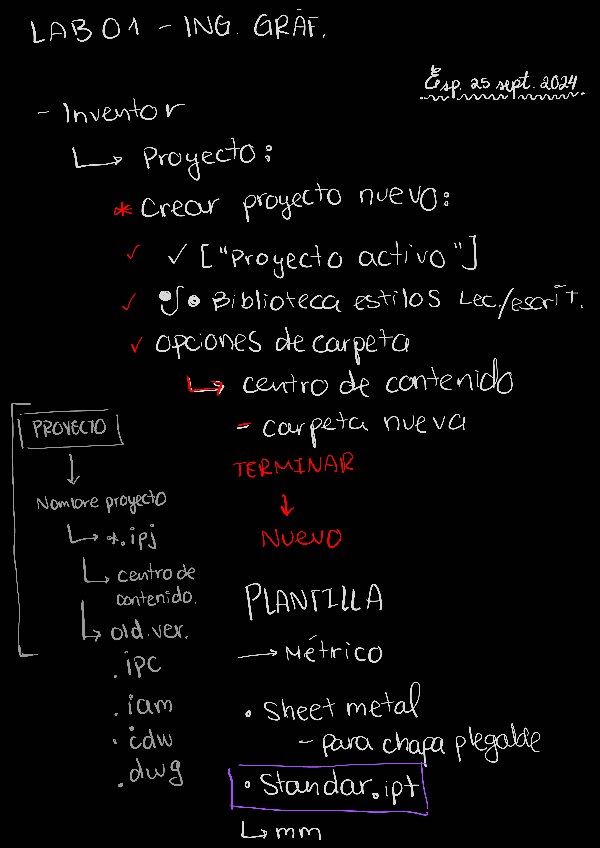 LAB 01 - ING. GRÁF.
Esp. 25 sept. 2024
- Inventor
Proyecto:
* Crear proyecto nuevo:
✓ ✓ ["Proyecto activo"]
✓ Biblioteca estilos Lec./escrit.
✓ opciones de carpeta
centro de contenido
- carpeta nueva
TERMINAR
↓
NUEVO
PROYECTO
↓
Nombre proyecto
*.ipj
centro de
contenido.
old.ver.
.ipc
.iam
.idw
.dwg
PLANTILLA
→ Métrico
• Sheet metal
- para chapa plegable
• Standar.ipt
mm